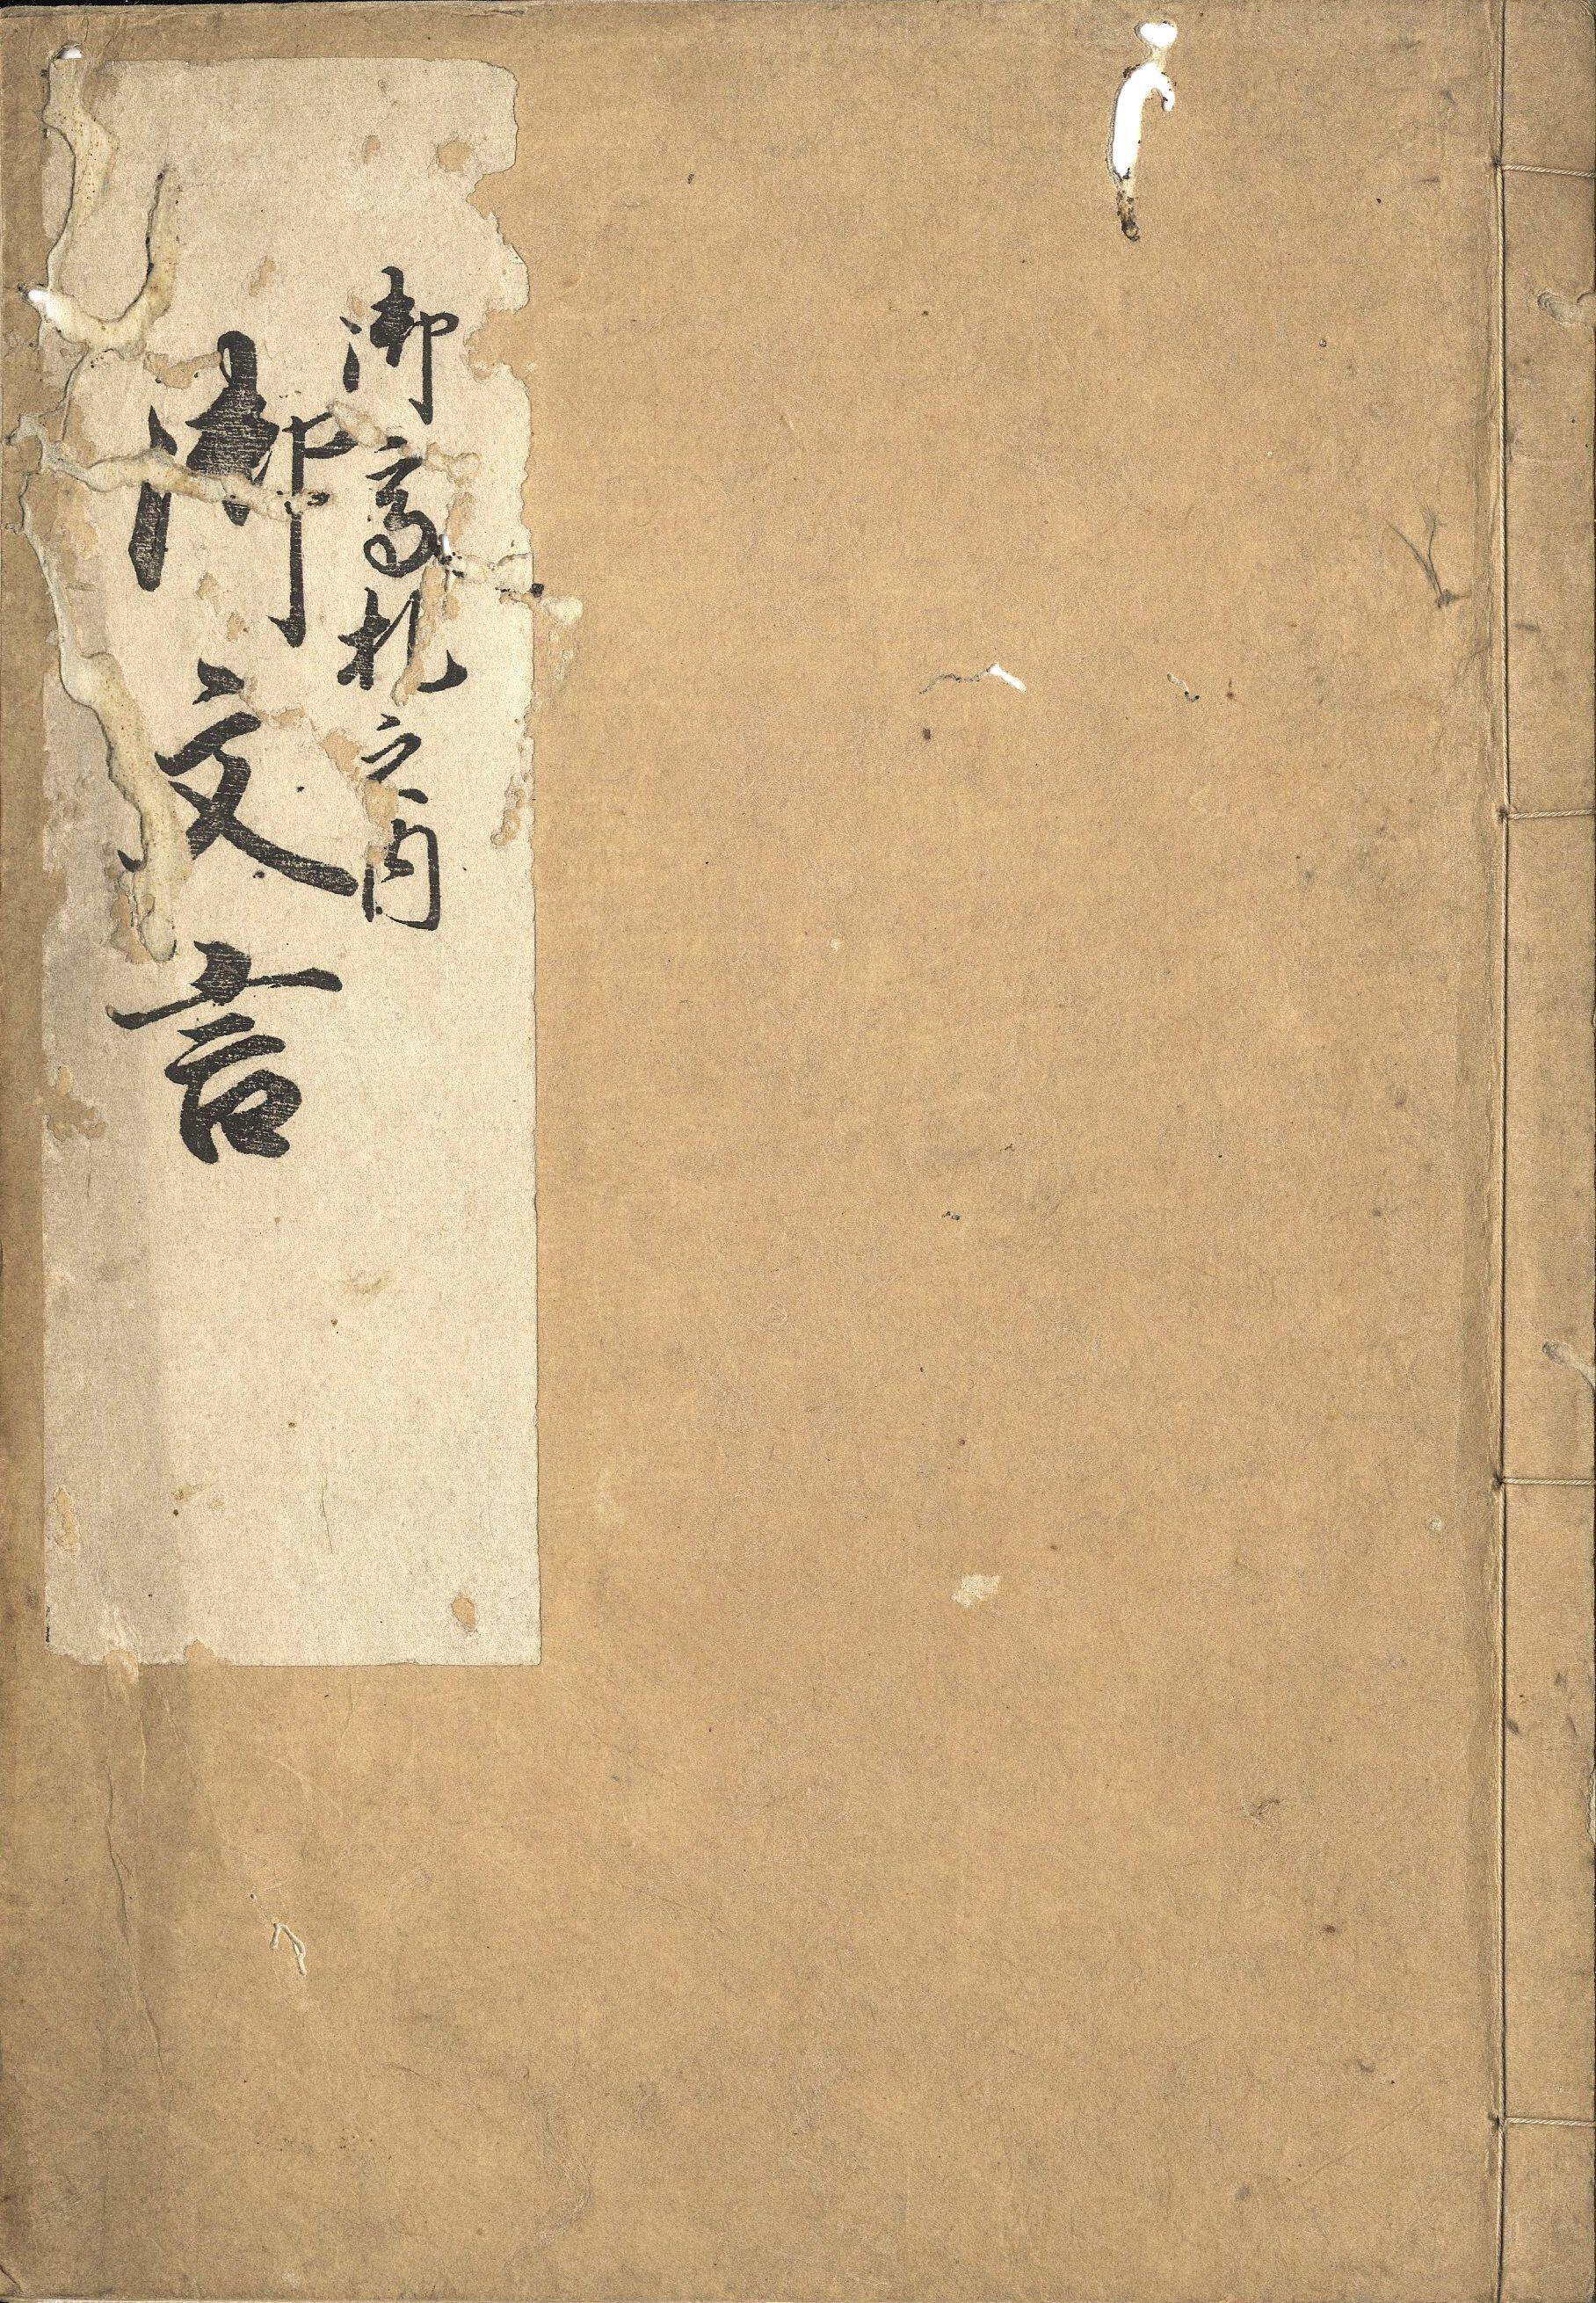 御高札之内
御文言